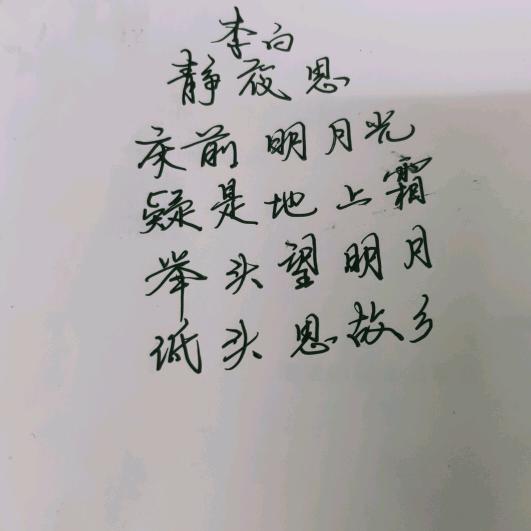 李白
静夜思
床前明月光
疑是地上霜
举头望明月
低头思故乡